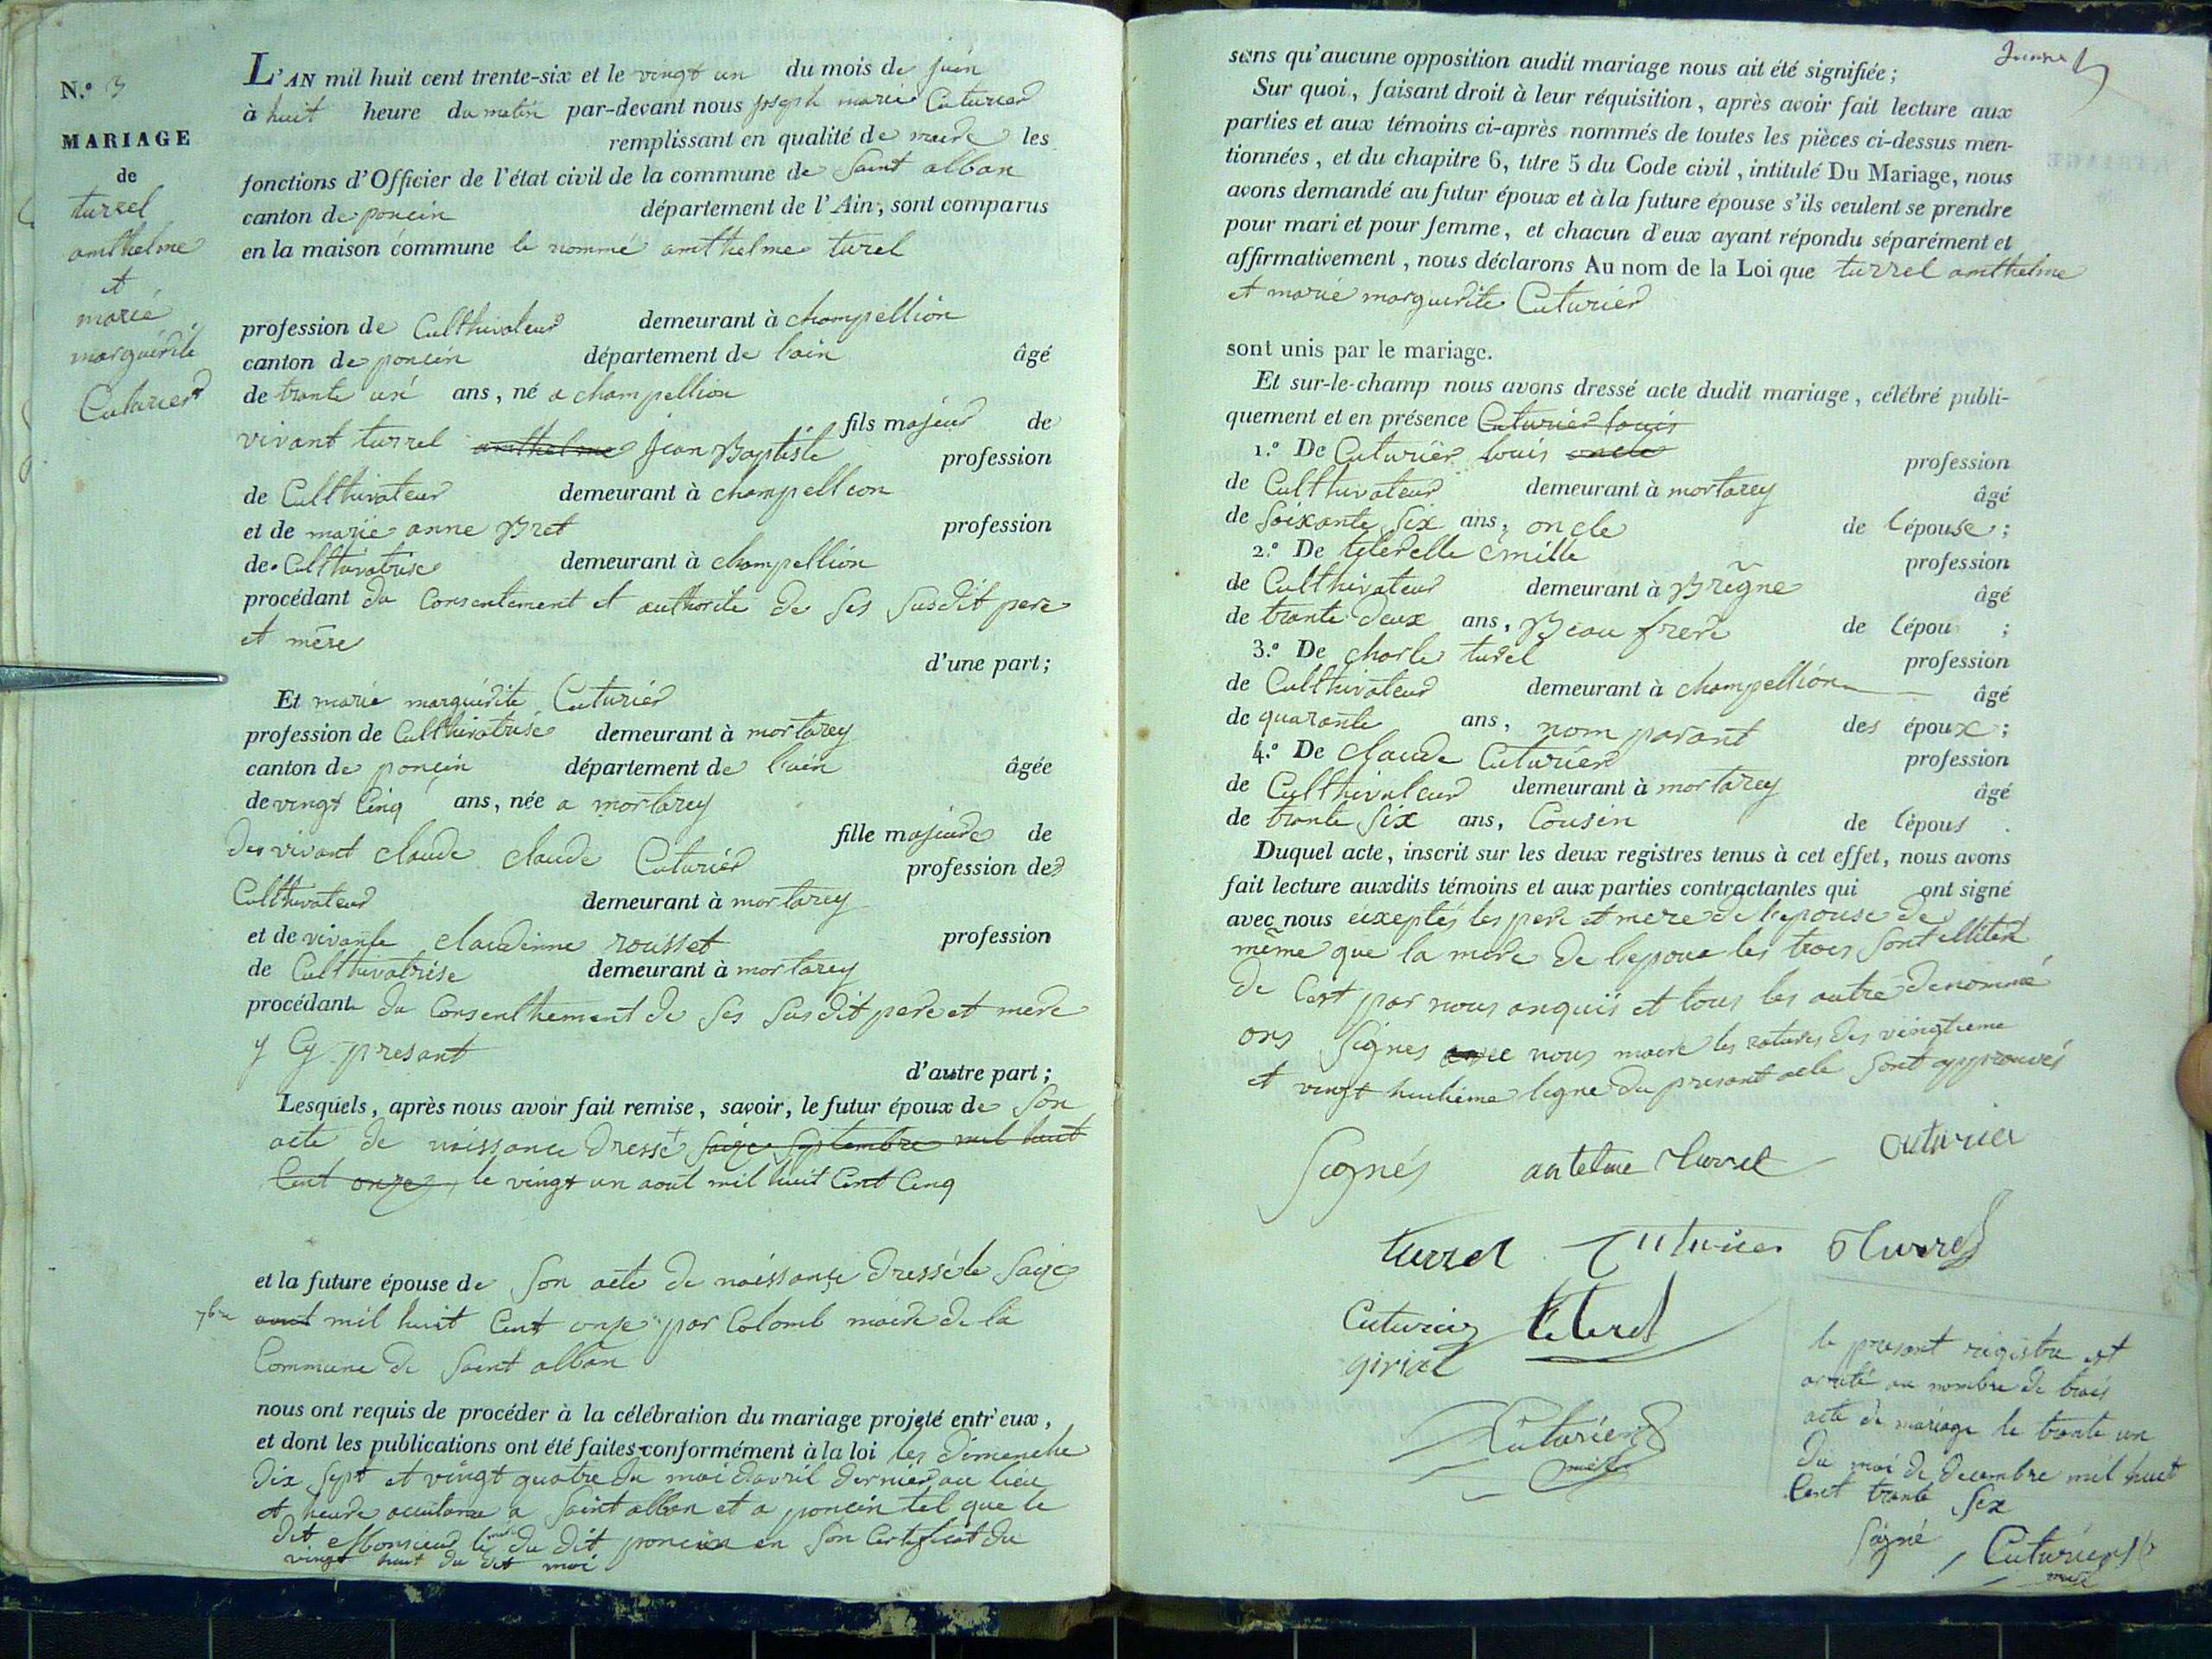 N.º 3
MARIAGE
de
turrel
amthelme
et
marie
marguérite
Cuturier
L'AN mil huit cent trente-six et le vingt un du mois de juin
à huit heure du matin par-devant nous joseph marie Cuturier
remplissant en qualité de maire les
fonctions d'Officier de l'état civil de la commune de Saint alban
canton de poncin département de l'Ain, sont comparus
en la maison commune le nommé amthelme turel
profession de Culthivateur demeurant à champellion
canton de poncin département de lain âgé
de trante un ans, né a champellion
fils majeur de
vivant turrel amthelme jean Baptiste profession
de Culthivateur demeurant à champellion
et de marie anne Bret profession
de Culthivatrise demeurant à champellion
procédant du Consentement et authorité de Ses Susdit pere
et mère
d'une part;
Et marie marguérite Cuturier
profession de Culthivatrise demeurant à mortarey
canton de poncin département de l'ain âgée
de vingt Cinq ans, née a mortarey
fille majeure de
des vivant claude claude Cuturier profession de
Culthivateur demeurant à mortarey
et de vivante claudinne rousset profession
de Culthivatrise demeurant à mortarey
procédant du Consenthement de Ses Sus dit pere et mere
y Cy presant
d'autre part;
Lesquels, après nous avoir fait remise, savoir, le futur époux de Son
acte de naissance Dressé Saize Septembre mil huit
Cent onze, le vingt un aout mil huit Cent Cinq
et la future épouse de Son acte de naissance Dressé le Saize
7bre aout mil huit Cent onze par Colomb maire de la
Commune de Saint alban
nous ont requis de procéder à la célébration du mariage projeté entr'eux,
et dont les publications ont été faites conformément à la loi les Dimanche
Dix Sept et vingt quatre du moi d'avril dernier au lieu
et heure a Saint alban et a poncin tel que le
dit Monsieur le du Dit poncin en Son Certificat du
vingt huit du dit moi
sans qu'aucune opposition audit mariage nous ait été signifiée;
Sur quoi, faisant droit à leur réquisition, après avoir fait lecture aux
parties et aux témoins ci-après nommés de toutes les pièces ci-dessus men-
tionnées, et du chapitre 6, titre 5 du Code civil, intitulé Du Mariage, nous
avons demandé au futur époux et à la future épouse s'ils veulent se prendre
pour mari et pour femme, et chacun d'eux ayant répondu séparément et
affirmativement, nous déclarons Au nom de la Loi que turrel amthelme
et marie marguerite Cuturier
sont unis par le mariage.
Et sur-le-champ nous avons dressé acte dudit mariage, célébré publi-
quement et en présence Cuturier louis
1.º De Cuturier louis oncle profession
de Culthivateur demeurant à mortarey âgé
de Soixante Six ans, oncle de lépouse;
2.º De teterelle émille profession
de Culthivateur demeurant à Brégne âgé
de trante deux ans, Beau frere de lépou ;
3.º De charle turel profession
de Culthivateur demeurant à champellion âgé
de quarante ans, nom parant des époux;
4.º De claude Cuturier profession
de Culthivateur demeurant à mortarey âgé
de trante Six ans, Cousin de lépous .
Duquel acte, inscrit sur les deux registres tenus à cet effet, nous avons
fait lecture auxdits témoins et aux parties contractantes qui ont signé
avec nous exeptés les pere et mere de l'epouse de
même que la mere de l'epoux les trois Sont
De Cest par nous anquis et tous les autre denommé
ons Signes avec nous maire les ratures des vingtieme
et vingt huitieme ligne du presant acte Sont approuvés
Signés antelme turrel Cuturier
turrel Cuturier turrel
Cuturier teterel
girix
Cuturier
maire
le presant registre est
arreté au nombre de trois
acte de mariage le trante un
du moi de decembre mil huit
Cent trante Six
Signé Cuturier
maire